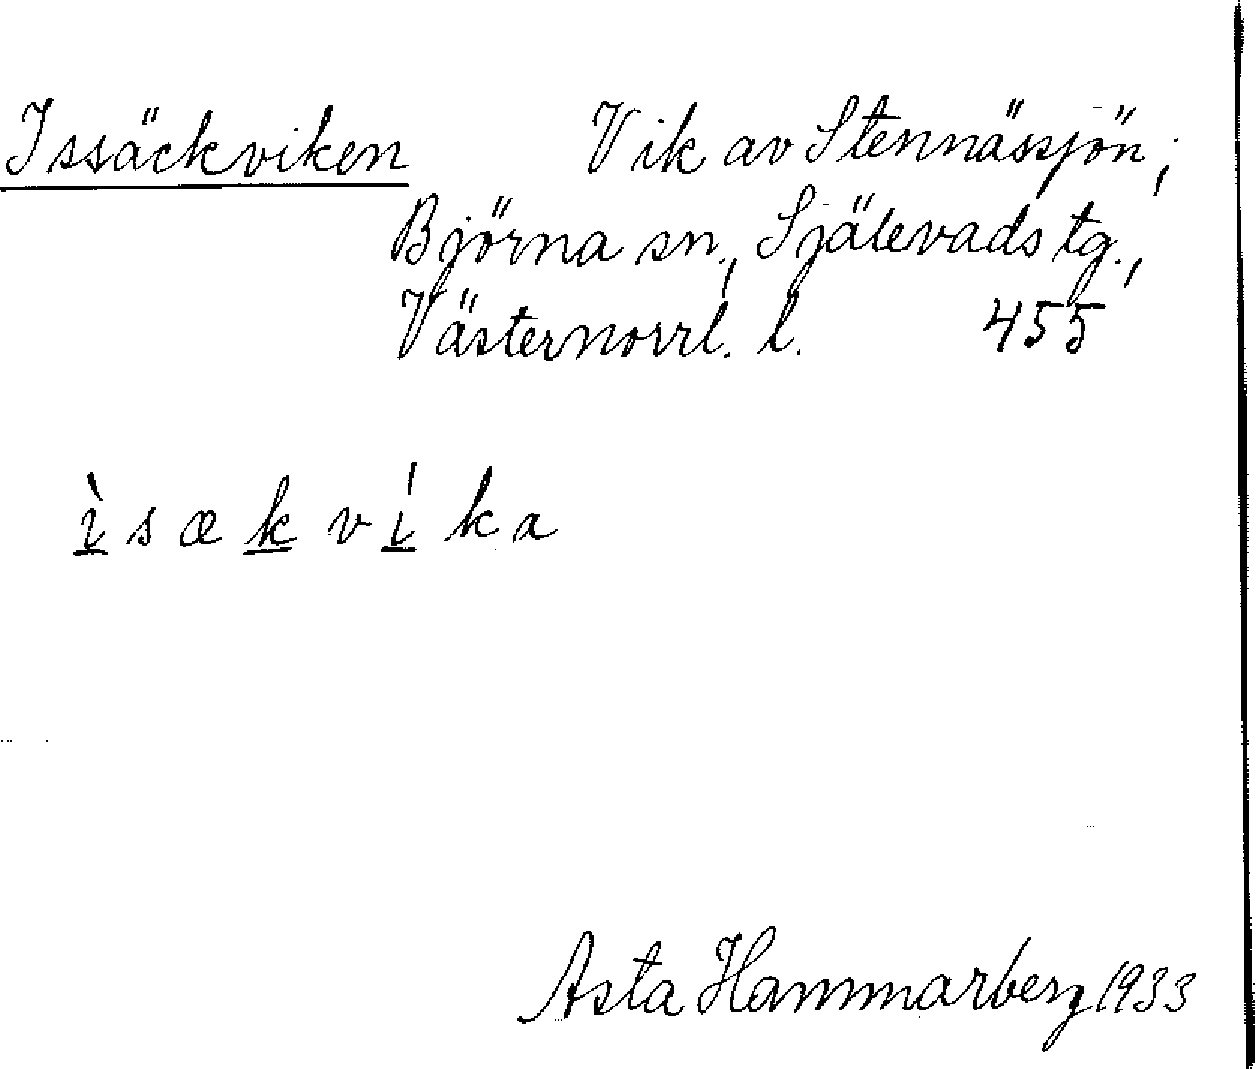 Issäckviken Vik av Stennässjön;
Björna sn., Själevads tg.,
Västernorrl. l. 455
ì̱ s æ ḵ v í̱ k a
Asta Hammarberg 1933